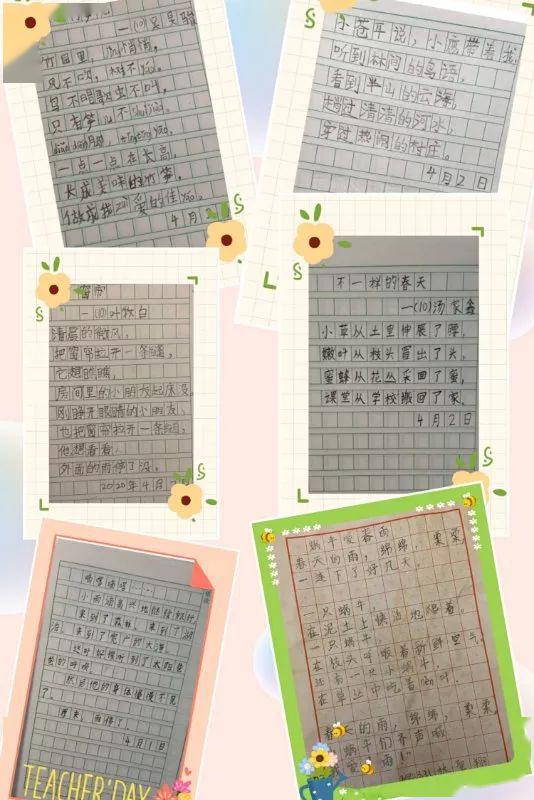 一(10)吴昊聪
竹园里，静悄悄，
风不吹，树不摇。
鸟不唱歌虫不叫，
只有笋
一点一点在长高，
长成美味的竹笋，
做成我 爱的佳
4月2
小苍耳说，小鹿带着我
听到林间的鸟语，
看到半山的云海，
趟过清清的河水，
穿过热闹的村庄。
4月2日
窗帘
一(10)叶牧白
清晨的微风，
把窗帘拉开一条缝，
它想瞧瞧，
房间里的小朋友起床没。
刚睁开眼睛的小朋友，
也把窗帘拉开一条缝，
他想看看，
外面的雨停了没。
2020年4月2日
不一样的春天
一(10)汤家鑫
小草从土里伸展了腰，
嫩叶从枝头冒出了头，
蜜蜂从花丛采回了蜜，
课堂从学校搬回了家。
4月2日
嘀嗒嘀嗒……
小雨滴高兴地
来到了森林，来到了湖
泊，来到了宽广的大海。
这时好像听到了太阳
的呼唤
然后他的身体慢慢不见
了。
原来，雨停了
4月1日
TEACHER'DAY
蜗牛爱春雨
春天的雨，绵绵，柔柔
一连下了好几天。
一只蜗牛，
在泥土上快活地爬着。
一只蜗牛，
在枝头呼吸着新鲜空气。
还有一只小蜗牛，
在草丛中吃着树叶。
春天的雨，绵绵，柔柔
蜗牛们齐声喊
雨！"